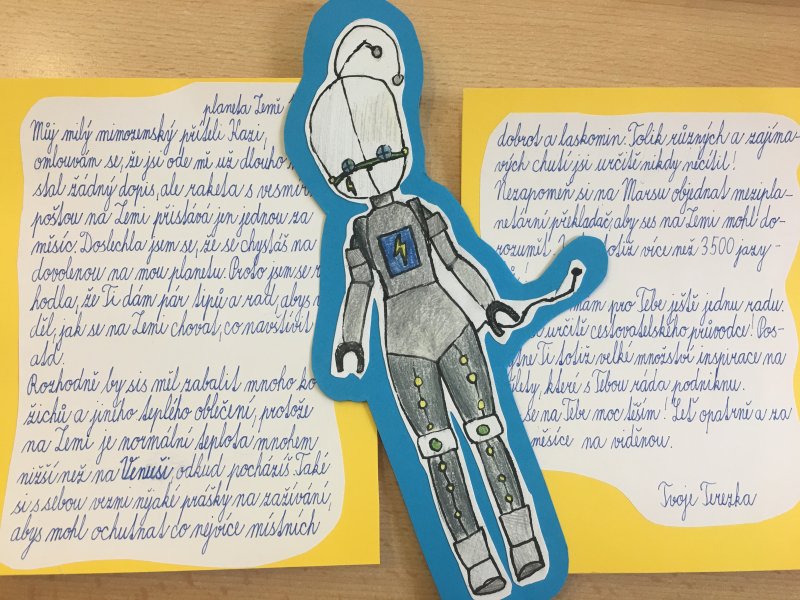 planeta Země
Můj milý mimozemský příteli Kazi,
omlouvám se, že jsi ode mě už dlouho
stal žádný dopis, ale raketa s vesmír
poštou na Zemi přistává jen jednou za
měsíc. Doslechla jsem se, že se chystáš na
dovolenou na mou planetu. Proto jsem se r
hodla, že Ti dám pár tipů a rad, abys
děl, jak se na Zemi chovat, co navštívit
atd.
Rozhodně by sis měl zabalit mnoho ko
žichů a jiného teplého oblečení, protože
na Zemi je normální teplota mnohem
nižší než na Venuši, odkud pocházíš. Také
si s sebou vezmi nějaké prášky na zažívání,
abys mohl ochutnat co nejvíce místních
dobrot a laskomin. Tolik různých a zajíma-
vých chutí jsi určitě nikdy necítil!
Nezapomeň si na Marsu objednat mezipla-
netární překladač, aby ses na Zemi mohl do-
rozumět. totiž více než 3500 jazy-
mám pro Tebe ještě jednu radu.
určitě cestovatelského průvodce! Pos-
tne Ti totiž velké množství inspirace na
lety, které s Tebou ráda podniknu.
se na Tebe moc těším! Leť opatrně a za
měsíce na viděnou.
Tvoje Terezka